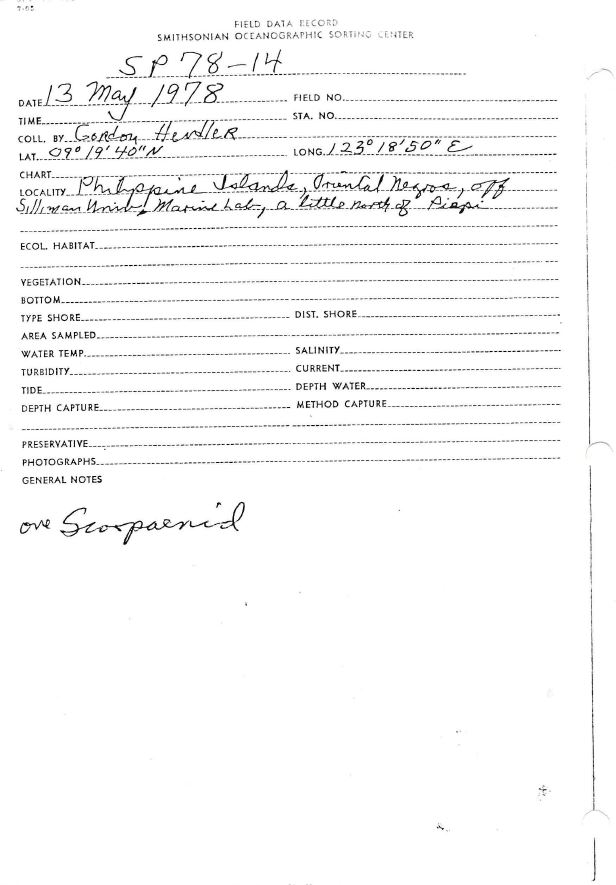 FIELD DATA RECORD
SMITHSONIAN OCEANOGRAPHIC SORTING CENTER
SP 78-14
DATE 13 May 1978 FIELD NO.
TIME STA. NO.
COLL. BY Gordon Hendler
LAT. 09° 19' 40" N LONG. 123° 18' 50" E
CHART
LOCALITY Philippine Islands, Oriental Negros, off
Silliman Univ. Marine Lab, a little north of Piapi
ECOL. HABITAT
VEGETATION
BOTTOM
TYPE SHORE DIST. SHORE
AREA SAMPLED
WATER TEMP. SALINITY
TURBIDITY CURRENT
TIDE DEPTH WATER
DEPTH CAPTURE METHOD CAPTURE
PRESERVATIVE
PHOTOGRAPHS
GENERAL NOTES
one Scorpaenid